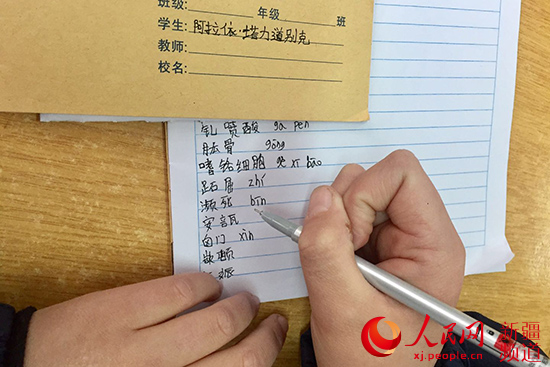 班级: 年级 班
学生: 阿拉依·塔力道别克
教师:
校名:
酸 ga pen
肱骨 gōng
嗜铬细胞 xì bāo
跖屈 zhí
濒死 bīn
安瓿
囟门 xìn
人民网 新疆频道
xj.people.cn